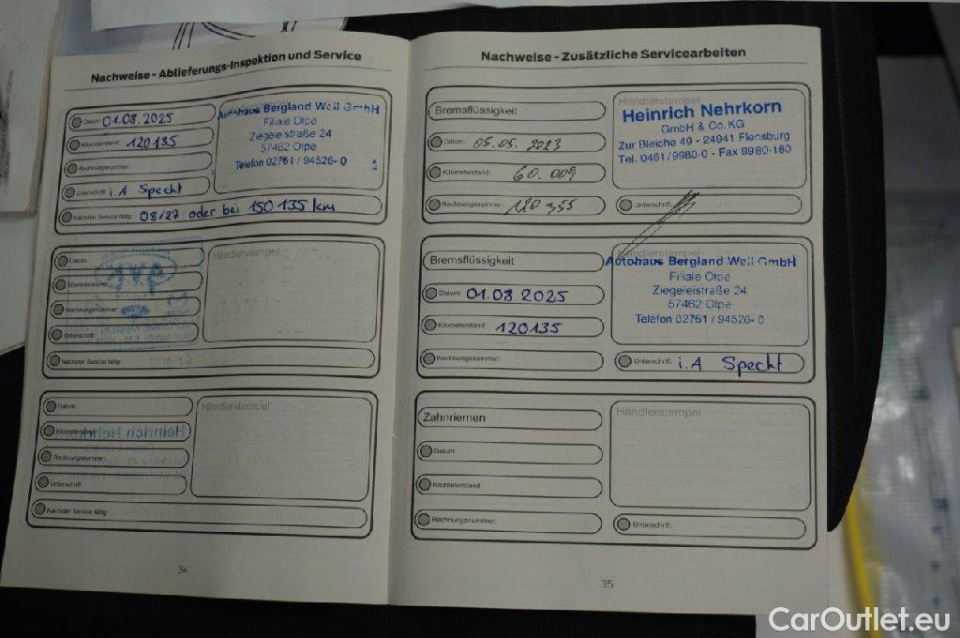 Nachweise - Ablieferungs-Inspektion und Service
Datum: 01.08.2025
Kilometerstand: 120135
Rechnungsnummer:
Unterschrift: i.A Specht
Nächster Service fällig: 08/27 oder bei 150 135 km
Autohaus Bergland Well GmbH
Filiale Olpe
Ziegeleistraße 24
57462 Olpe
Telefon 02761 / 94526-0
Datum:
Kilometerstand:
Rechnungsnummer:
Unterschrift:
Nächster Service fällig:
Händlerstempel
Datum:
Kilometerstand:
Rechnungsnummer:
Unterschrift:
Nächster Service fällig:
Händlerstempel
34
Nachweise - Zusätzliche Servicearbeiten
Bremsflüssigkeit
Datum: 05.05.2023
Kilometerstand: 60.009
Rechnungsnummer:
Händlerstempel
Heinrich Nehrkorn
GmbH & Co. KG
Zur Bleiche 49 - 24941 Flensburg
Tel. 0461/9980-0 - Fax 9980-180
Unterschrift:
Bremsflüssigkeit
Datum: 01.08.2025
Kilometerstand: 120135
Rechnungsnummer:
Händlerstempel
Autohaus Bergland Well GmbH
Filiale Olpe
Ziegeleistraße 24
57462 Olpe
Telefon 02761 / 94526-0
Unterschrift: i.A Specht
Zahnriemen
Datum:
Kilometerstand:
Rechnungsnummer:
Händlerstempel
Unterschrift:
35
CarOutlet.eu